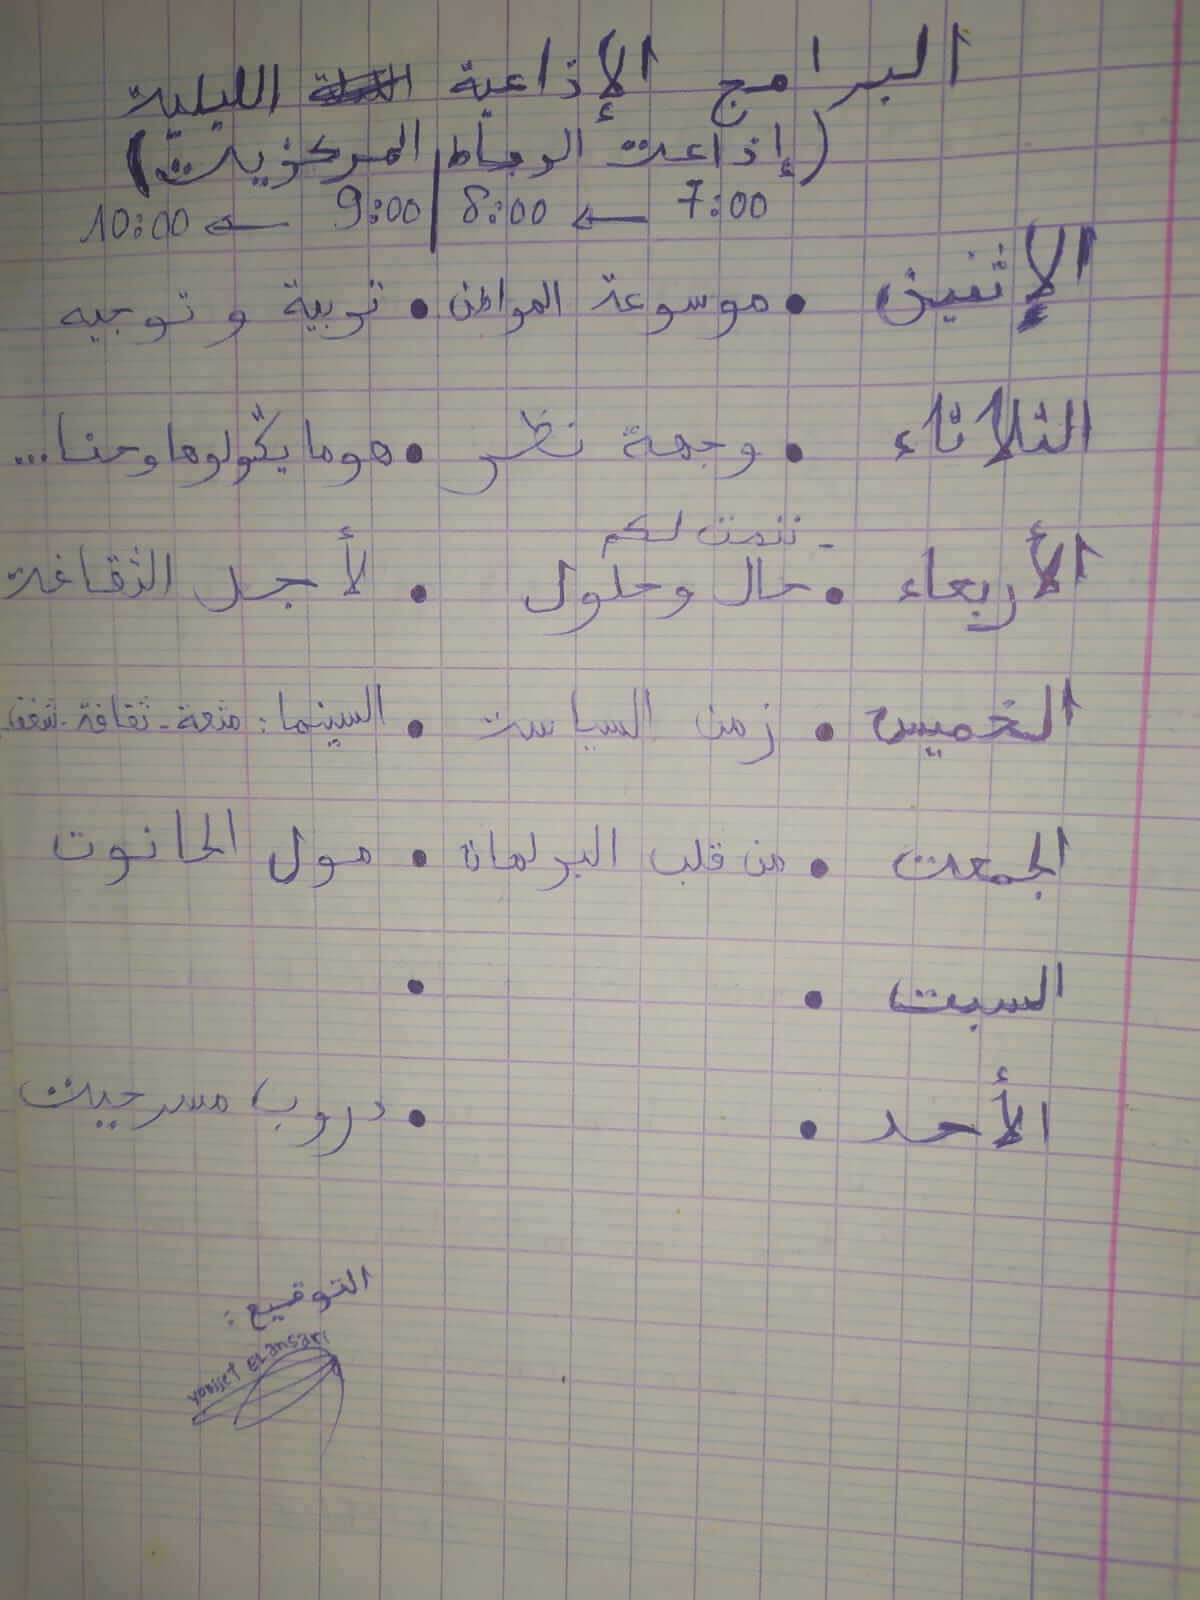 البرامج الإذاعية الليلية
(إذاعة الرباط المركزية)
7:00 ← 8:00 | 9:00 ← 10:00
الإثنين • موسوعة المواطن • تربية و توجيه
الثلاثاء • وجهة نظر • هوما يڭولوها وحنا...
- ننصت لكم
الأربعاء • حال وحلول • لأجل الثقافة
الخميس • زمن السياسة • السينما: متعة - ثقافة - شغف
الجمعة • من قلب البرلمان • مول الحانوت
السبت • •
الأحد • • دروب مسرحية
التوقيع:
Youssef El ansari